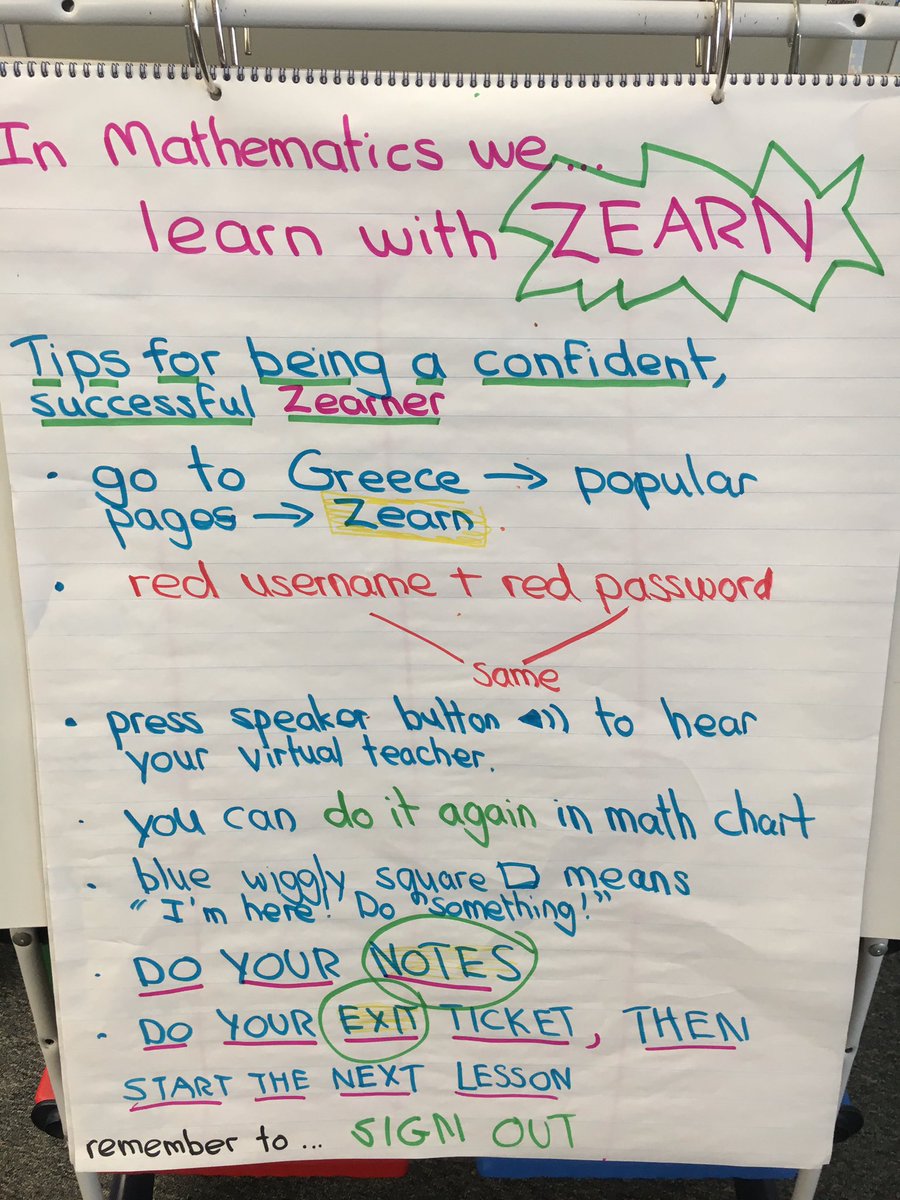 In Mathematics we...
learn with ZEARN
Tips for being a confident,
successful Zearner
• go to Greece → popular
pages → Zearn
• red username + red password
same
• press speaker button to hear
your virtual teacher.
• you can do it again in math chart
• blue wiggly square means
"I'm here! Do "something!"
• DO YOUR NOTES
• DO YOUR EXIT TICKET, THEN
START THE NEXT LESSON
remember to ... SIGN OUT